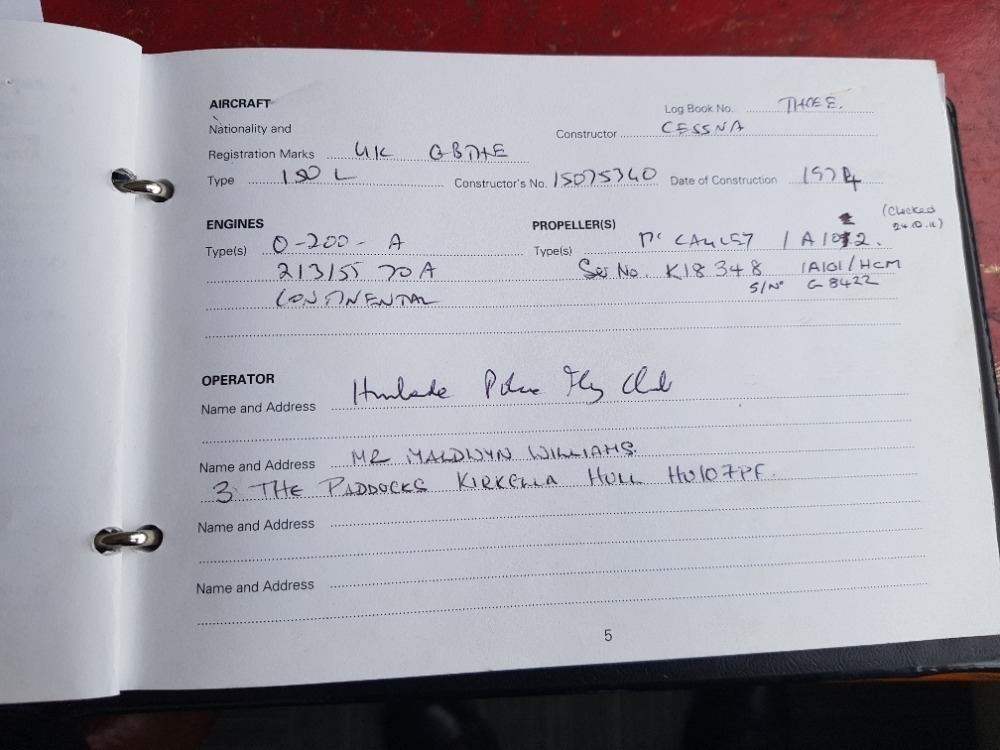 AIRCRAFT
Log Book No. THREE.
Nationality and
Constructor CESSNA
Registration Marks UK G BTHE
Type 150 L Constructor's No. 15075340 Date of Construction 1974
(Checked
24.10.11)
ENGINES PROPELLER(S)
Type(s) O-200-A Type(s) Mc CAULEY 1A102.
213155 70A Ser No. K18348 1A101/HCM
CONTINENTAL S/No G8422
OPERATOR
Name and Address Humberside Police Fly Club
Name and Address MR MALDWYN WILLIAMS.
3 THE PADDOCKS KIRKELLA HULL HU107PF.
Name and Address
Name and Address
5